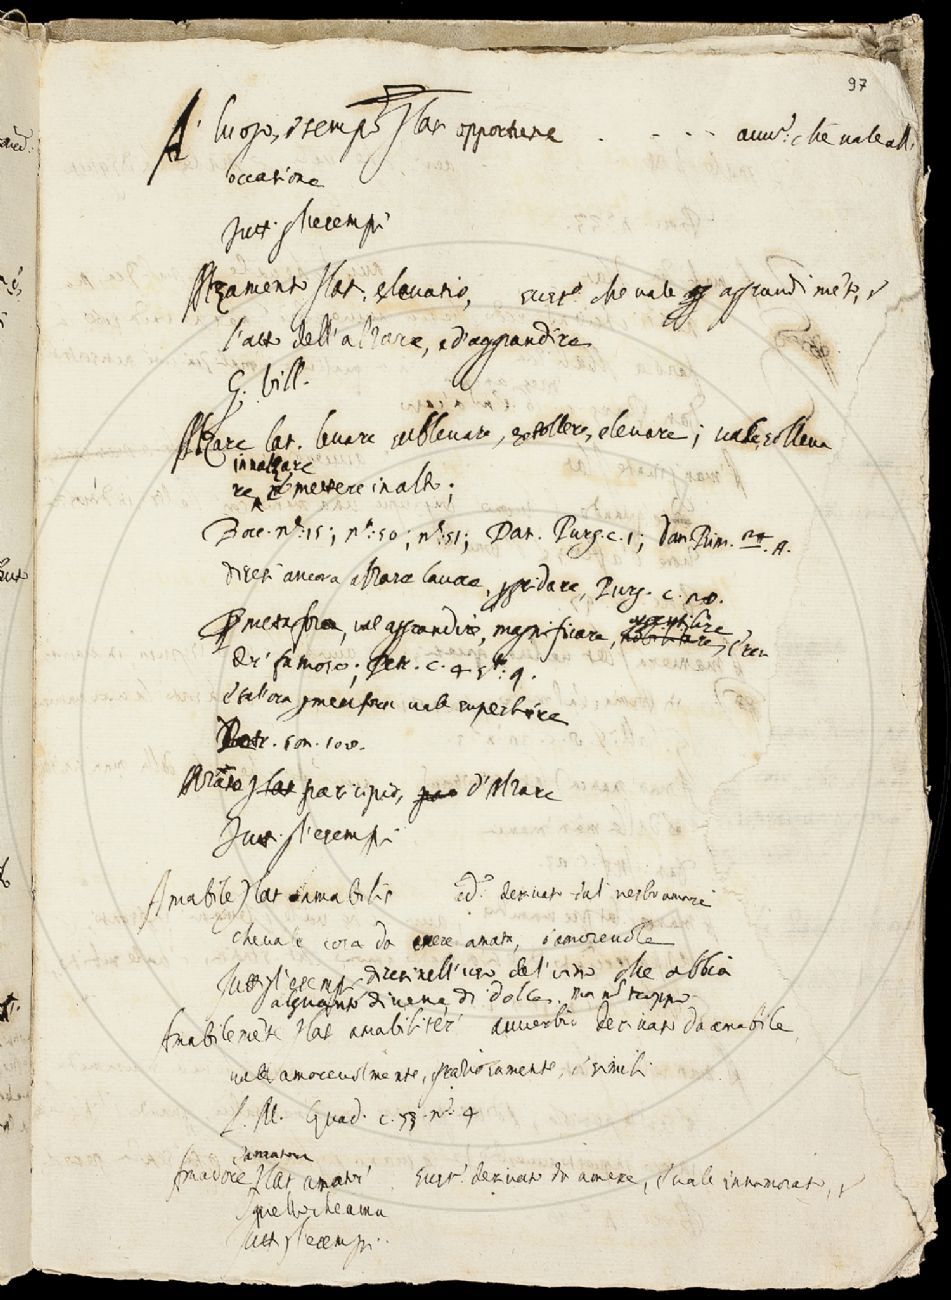 97
A' luogo, e tempo lat opportune . - - . . auu.o: che uale all'
occasione
Tutti gl'esempi
Alzamento lat. eleuatio, sust.o che uale aggrandimēto, e
l'atto dell'alzare, e d'aggrandire
G. Vill.
Alzare lat. leuare subleuare, extollere, eleuare; uale solleua
innalzare
re, e mettere in alto;
Bocc. n.o: 15; n.o: 50; n.o: 51; Dan. Purg. c. 1; Dan Rim.
dicesi ancora alzare la uoce, p gridare, Purg. c.
P metafora, ual aggrandire, magnificare, nobilitare,
der' famoso; Petr. c. 4 st: 9.
e tal'ora p metafora uale superbire
Petr. son. 100.
Alzato lat participio, d'Alzare
Tutti gl'esempi
Amabile lat amabilis add.o deriuato dal uerbo amare
che uale cosa da essere amata, e amoreuole
Tutti gl'esempi dicesi nell'uso del uino che abbia
alquanto di uena di dolce, ma nō troppo
Amabilmēte lat amabiliter auuerbio deriuato da amabile
uale amoreuolmente, graziosamente, e simili
L. M. Guad. c. 53. n.o 4
amatore
Amadore lat amator sust.o deriuato da amare, e uale innamorato, e
quello che ama
Tutti gl'esempi.